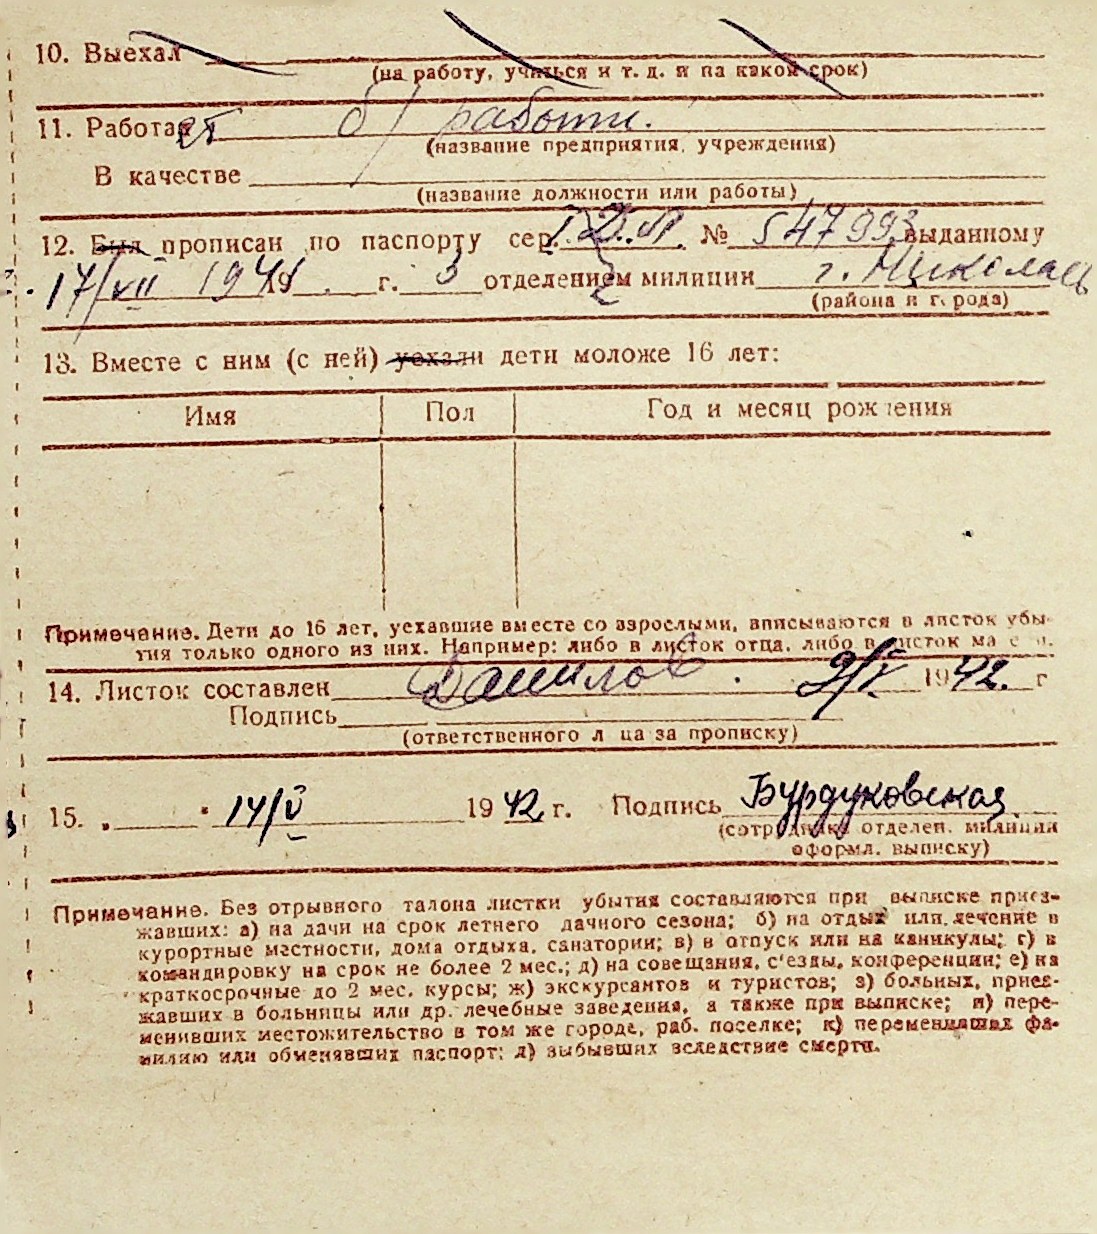 10. Выехал
(на работу, учиться и т. д. и на какой срок)
11. Работает б/ работы.
(название предприятия, учреждения)
В качестве
(название должности или работы)
12. Был прописан по паспорту сер. № 547993 выданному
17/VII 1941 г. 3 отделением милиции г. Николаев
(района и города)
13. Вместе с ним (с ней) уехали дети моложе 16 лет:
Имя Пол Год и месяц рождения
Примечание. Дети до 16 лет, уехавшие вместе со взрослыми, вписываются в листок убы-
тия только одного из них. Например: либо в листок отца, либо в листок матери.
14. Листок составлен Данилов. 9/V 1942. г
Подпись
(ответственного лица за прописку)
15. „ “ 14/V 1942 г. Подпись Бурдуковская
(сотрудника отделен. милиции
оформл. выписку)
Примечание. Без отрывного талона листки убытия составляются при выписке приез-
жавших: а) на дачи на срок летнего дачного сезона; б) на отдых или лечение в
курортные местности, дома отдыха, санатории; в) в отпуск или на каникулы; г) в
командировку на срок не более 2 мес.; д) на совещания, с'езды, конференции; е) на
краткосрочные до 2 мес. курсы; ж) экскурсантов и туристов; з) больных, приез-
жавших в больницы или др. лечебные заведения, а также при выписке; и) пере-
менивших местожительство в том же городе, раб. поселке; к) переменивших фа-
милию или обменявших паспорт; л) выбывших вследствие смерти.